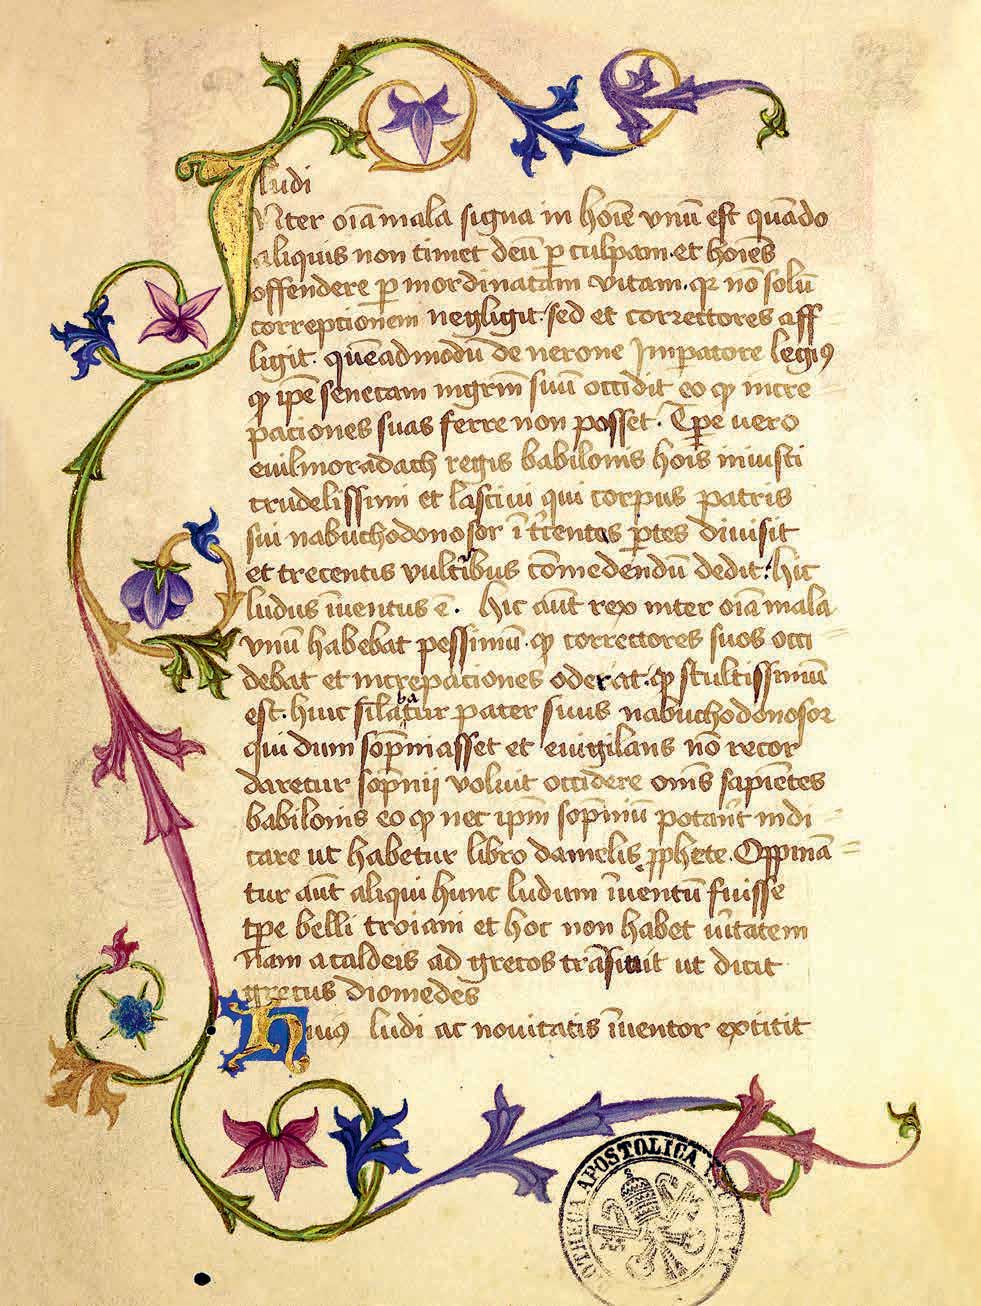 ludi
Nter oīa mala signa in hoīe vnū est quādo
aliquis non timet deū p culpam et hoīes
offendere p inordinatam vitam. qꝛ nō solū
correptionem negligit. sed et correctores aff
ligit. quēadmodū de nerone Imperatore legiꝰ
ꝙ ipē senecam mgrm̄ suū occidit eo ꝙ incre
paciones suas ferre non posset. Tpe vero
euilmoradach regis babilonis hoīs iniusti
crudelissimi et lasciui qui corpus patris
sui nabuchodonosor ī trecentes ptes diuisit
et trecentis vultribus comedendū dedit. hic
ludus īuentus ē. hic aūt rex inter oīa mala
vnū habebat pessimū. ꝙ correctores suos occi
debat et increpaciones oderat. ꝙ stultissimū
est. huic silabatur pater suus nabuchodonosor
qui dum sopniasset et euigilans nō recor
daretur sopnij voluit occidere omīs sapiētes
babilonis eo ꝙ nec ipm̄ sopniū potant indi
care ut habetur libro danielis pphete. Oppinā
tur aūt aliqui hunc ludum īuentū fuisse
tpe belli troiani et hoc non habet uītatem
nam a caldeis ad grecos trāsiuit ut dicit
grecus diomedes
Huiꝰ ludi ac nouitatis īuentor extitit
OTHECA APOSTOLICA